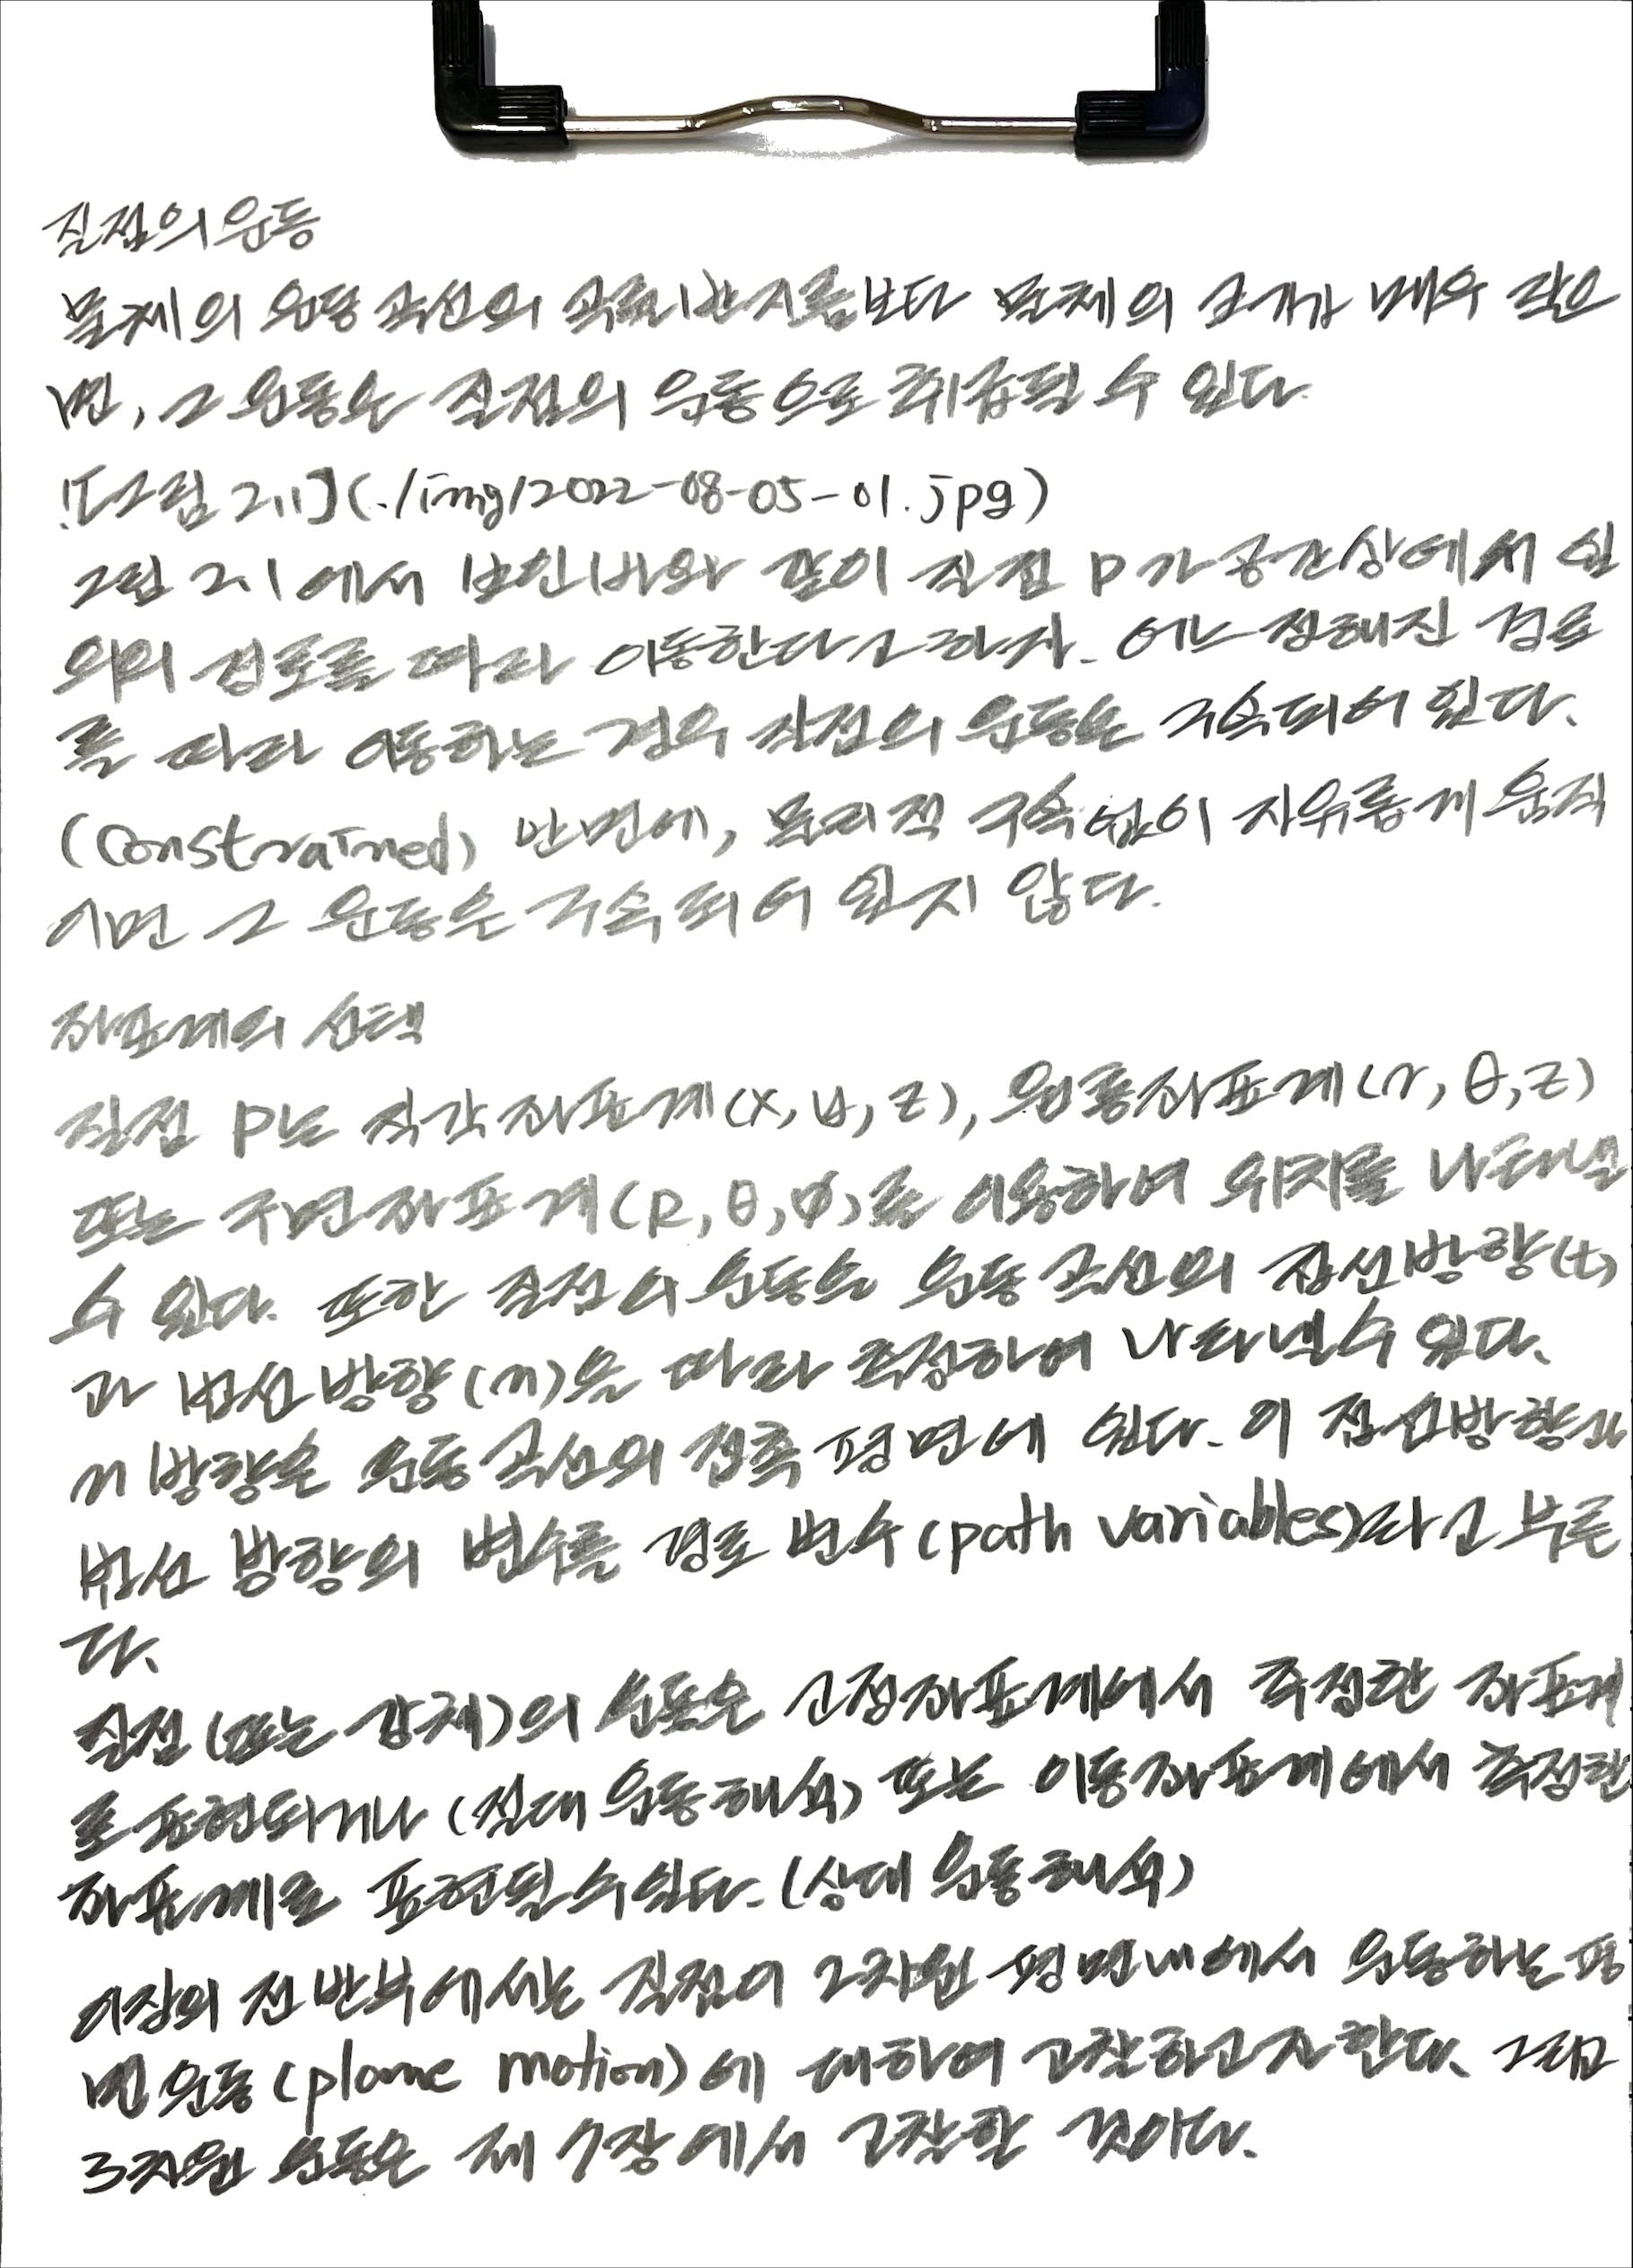 질점의 운동
물체의 운동 곡선의 곡률반지름보다 물체의 크기가 매우 작으
면, 그 운동은 질점의 운동으로 취급될 수 있다.
![그림 2.1](./img/2022-08-05-01.jpg)
그림 2.1에서 보인바와 같이 질점 P가 공간상에서 임
의의 경로를 따라 이동한다고 하자. 어느 정해진 경로
를 따라 이동하는 경우 질점의 운동은 구속되어 있다.
(constrained) 반면에, 물리적 구속없이 자유롭게 움직
이면 그 운동은 구속되어 있지 않다.
좌표계의 선택
질점 P는 직각 좌표계(x, y, z), 원통좌표계(r, θ, z)
또는 구면좌표계(R, θ, Φ)를 이용하여 위치를 나타낼
수 있다. 또한 질점의 운동은 운동 곡선의 접선방향(t)
과 법선 방향(n)을 따라 측정하여 나타낼 수 있다.
n 방향은 운동 곡선의 접촉 평면에 있다. 이 접선방향과
법선 방향의 변수를 경로 변수(path variables)라고 부른
다.
질점(또는 강체)의 운동은 고정좌표계에서 측정한 좌표계
로 표현되거나 (절대 운동 해석) 또는 이동좌표계에서 측정한
좌표계로 표현될 수 있다. (상대 운동 해석)
이장의 전반부에서는 질점이 2차원 평면내에서 운동하는 평
면 운동(plane motion)에 대하여 고찰하고자 한다. 그리고
3차원 운동은 제 7장에서 고찰할 것이다.